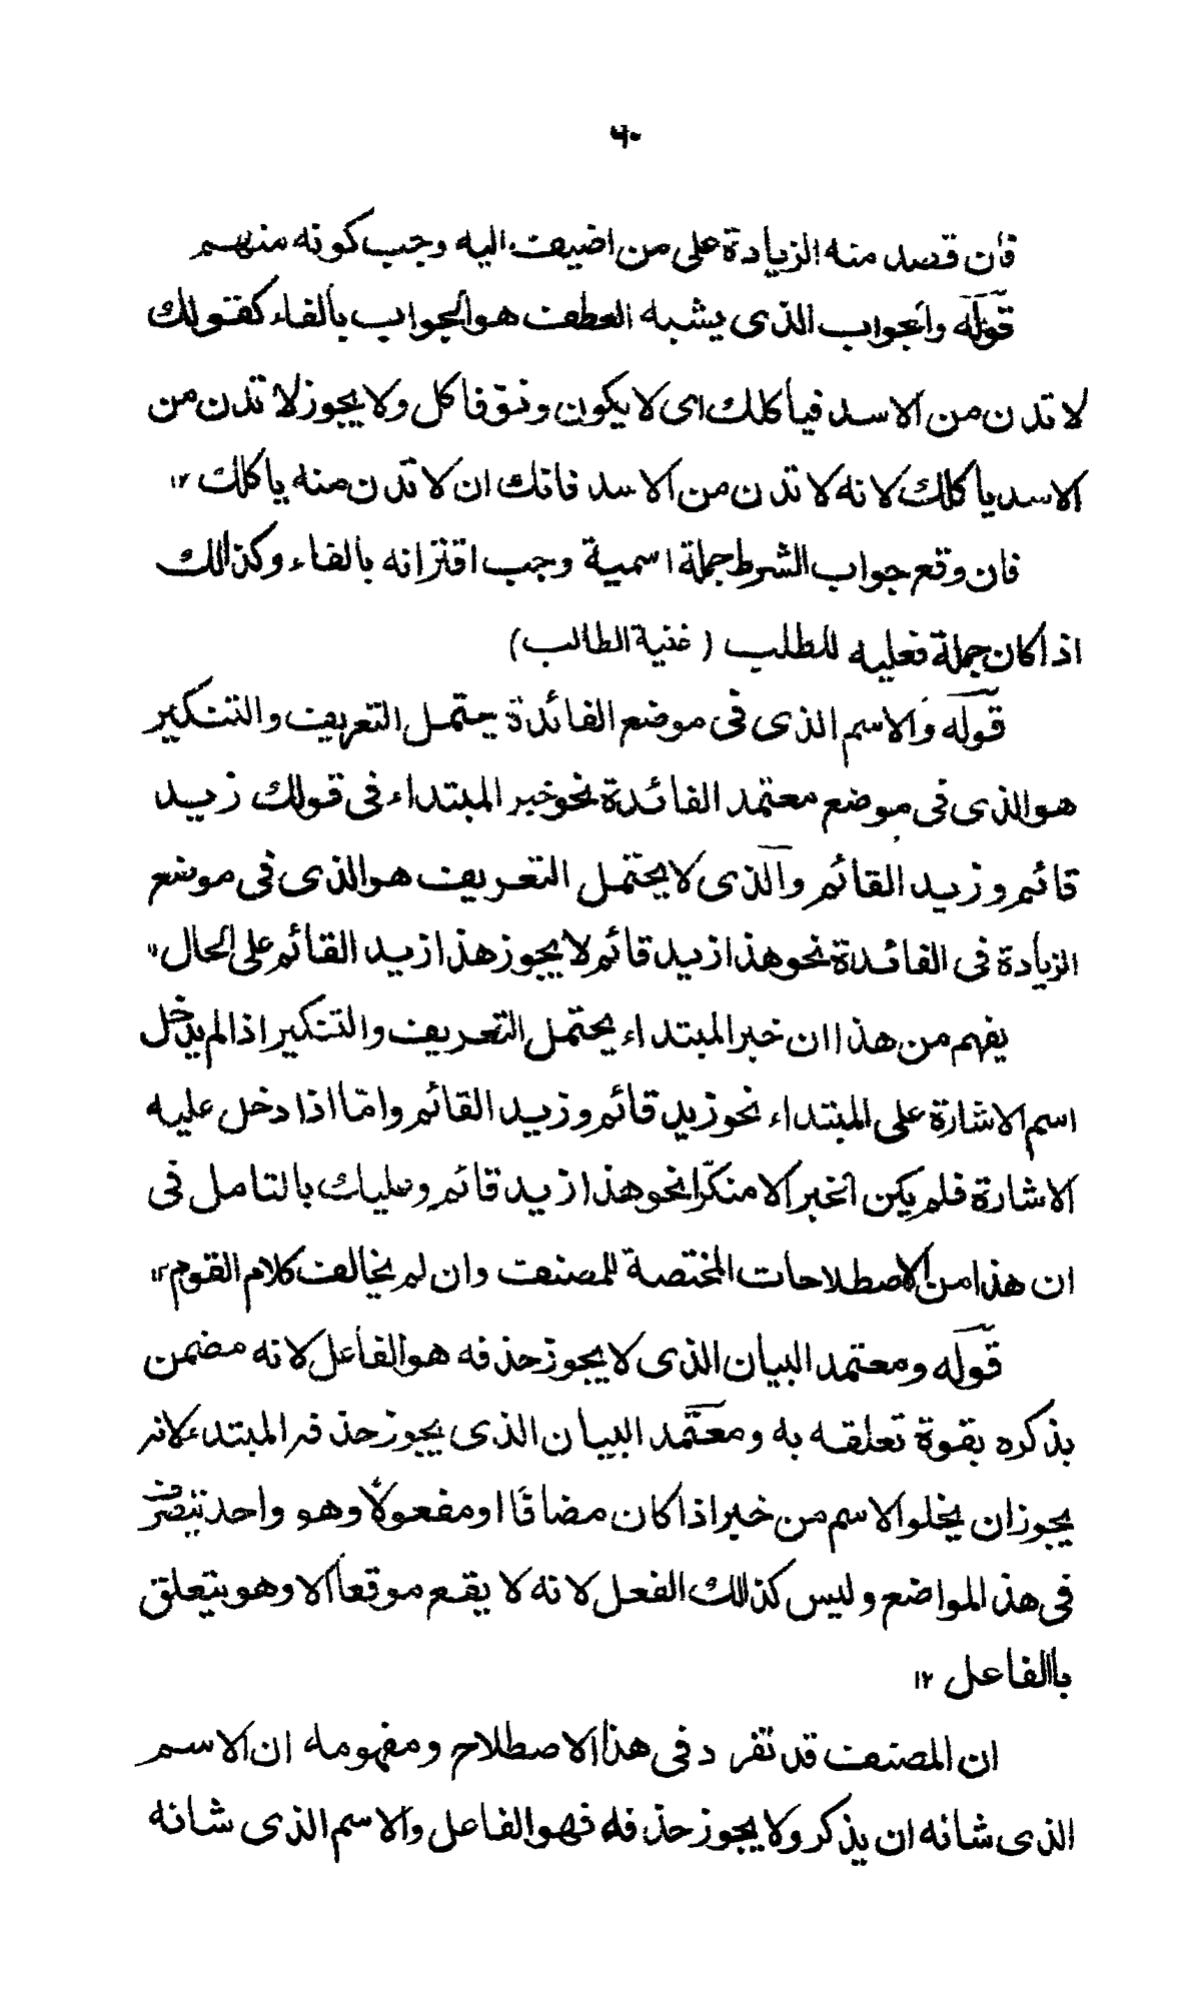 ۶۰
فان قصد منه الزيادة على من اضيف اليه وجب كونه منهم
قوله والجواب الذى يشبه العطف هو الجواب بالفاء كقولك
لا تدن من الاسد فيأكلك اى لا يكون دنو فاكل ولا يجوز لا تدن من
الاسد ياكلك لانه لا تدن من الاسد فانك ان لا تدن منه ياكلك ١٢
فان وقع جواب الشرط جملة اسمية وجب اقترانه بالفاء وكذلك
اذا كان جملة فعليه للطلب (غنية الطالب)
قوله والاسم الذى فى موضع الفائدة يحتمل التعريف والتنكير
هو الذى فى موضع معتمد الفائدة نحو خبر المبتداء فى قولك زيد
قائم وزيد القائم والذى لا يحتمل التعريف هو الذى فى موضع
الزيادة فى الفائدة نحو هذا زيد قائم لا يجوز هذا زيد القائم على الحال ١٢
يفهم من هذا ان خبر المبتداء يحتمل التعريف والتنكير اذا لم يدخل
اسم الاشارة على المبتداء نحو زيد قائم وزيد القائم وامّا اذا دخل عليه
الاشارة فلم يكن الخبر الا منكّرا نحو هذا زيد قائم وعليك بالتامل فى
ان هذا من الاصطلاحات المختصة للمصنف وان لم يخالف كلام القوم ١٢
قوله ومعتمد البيان الذى لا يجوز حذفه هو الفاعل لانه مضمن
بذكره بقوة تعلقه به ومعتمد البيان الذى يجوز حذفه المبتدء لانه
يجوز ان يخلو الاسم من خبر اذا كان مضافًا او مفعولًا وهو واحد يتصرف
فى هذ المواضع وليس كذلك الفعل لانه لا يقع موقعا الا وهو يتعلق
باالفاعل ١٢
ان المصنف قد تفرد فى هذا الاصطلاح ومفهومه ان الاسم
الذى شانه ان يذكر ولا يجوز حذفه فهو الفاعل والاسم الذى شانه